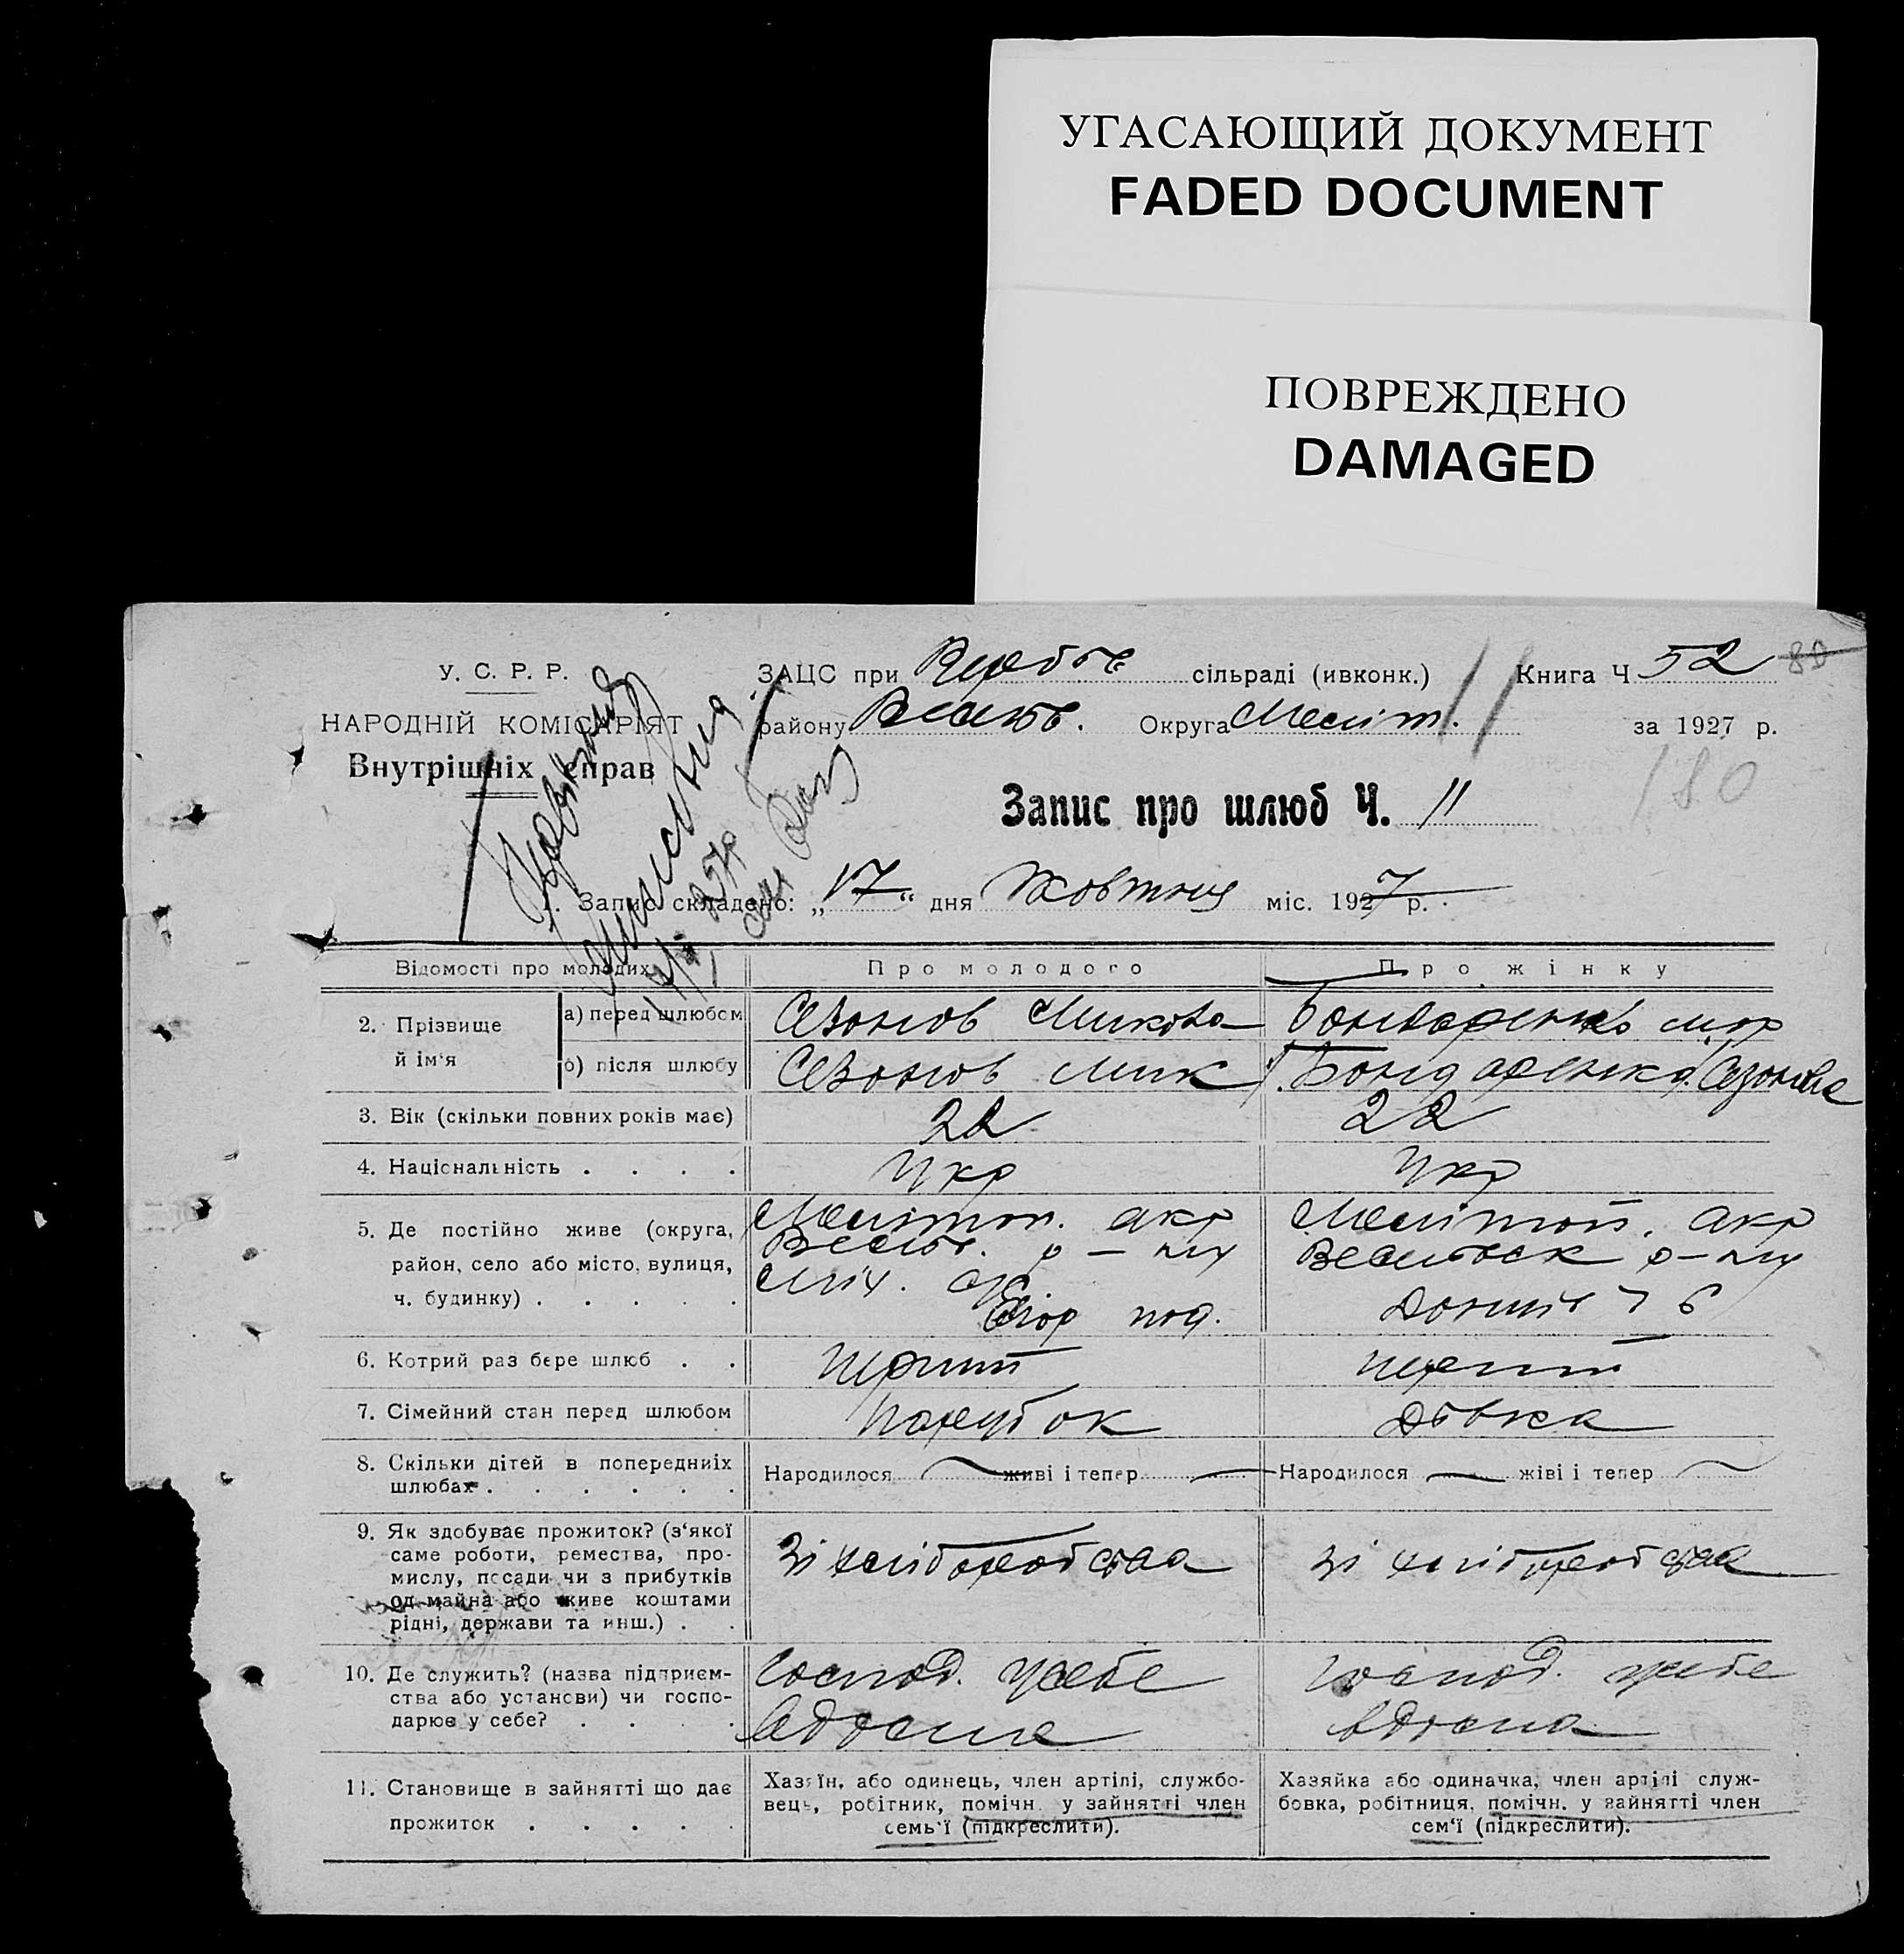 УГАСАЮЩИЙ ДОКУМЕНТ
FADED DOCUMENT
ПОВРЕЖДЕНО
DAMAGED
У. С. Р. Р.
НАРОДНІЙ КОМІСАРІЯТ
Внутрішніх справ
ЗАЦС при сільраді (ивконк.) Книга Ч 52 80
району Округа Меліт. за 1927 р.
180
Запис про шлюб Ч. 11
1. Запис складено: „17“ дня Жовтня міс. 1927 р.
Відомості про молодих Про молодого Про жінку
2. Прізвище й ім‘я
а) перед шлюбом Сезонов Микола Бондаренко
б) після шлюбу Сезонов Мик Бондаренко Сезонова
3. Вік (скільки повних років має) 22 22
4. Національність . . . . Укр Укр
5. Де постійно живе (округа, район, село або місто, вулиця, ч. будинку) . . . . .
Мелітоп. окр
р-ну
Мелітоп. окр
р-ну
6. Котрий раз бере шлюб . . перший перший
7. Сімейний стан перед шлюбом парубок дівка
8. Скільки дітей в попередниіх шлюбах . . . . . .
Народилося — живі і тепер —
Народилося — жіві і тепер —
9. Як здобуває прожиток? (з‘якої саме роботи, ремества, промислу, посади чи з прибутків од майна або живе коштами рідні, держави та инш.) . .
Зі хліборобства
зі хліборобства
10. Де служить? (назва підприємства або установи) чи господарює у себе? . . . .
Господ. у себе
вдома
Господ. у себе
вдома
11. Становище в зайнятті що дає прожиток . . . . .
Хазяїн, або одинець, член артілі, службовець, робітник, помічн. у зайнятті член семь‘ї (підкреслити).
Хазяйка або одиначка, член артілі службовка, робітниця, помічн. у зайнятті член сем‘ї (підкреслити).